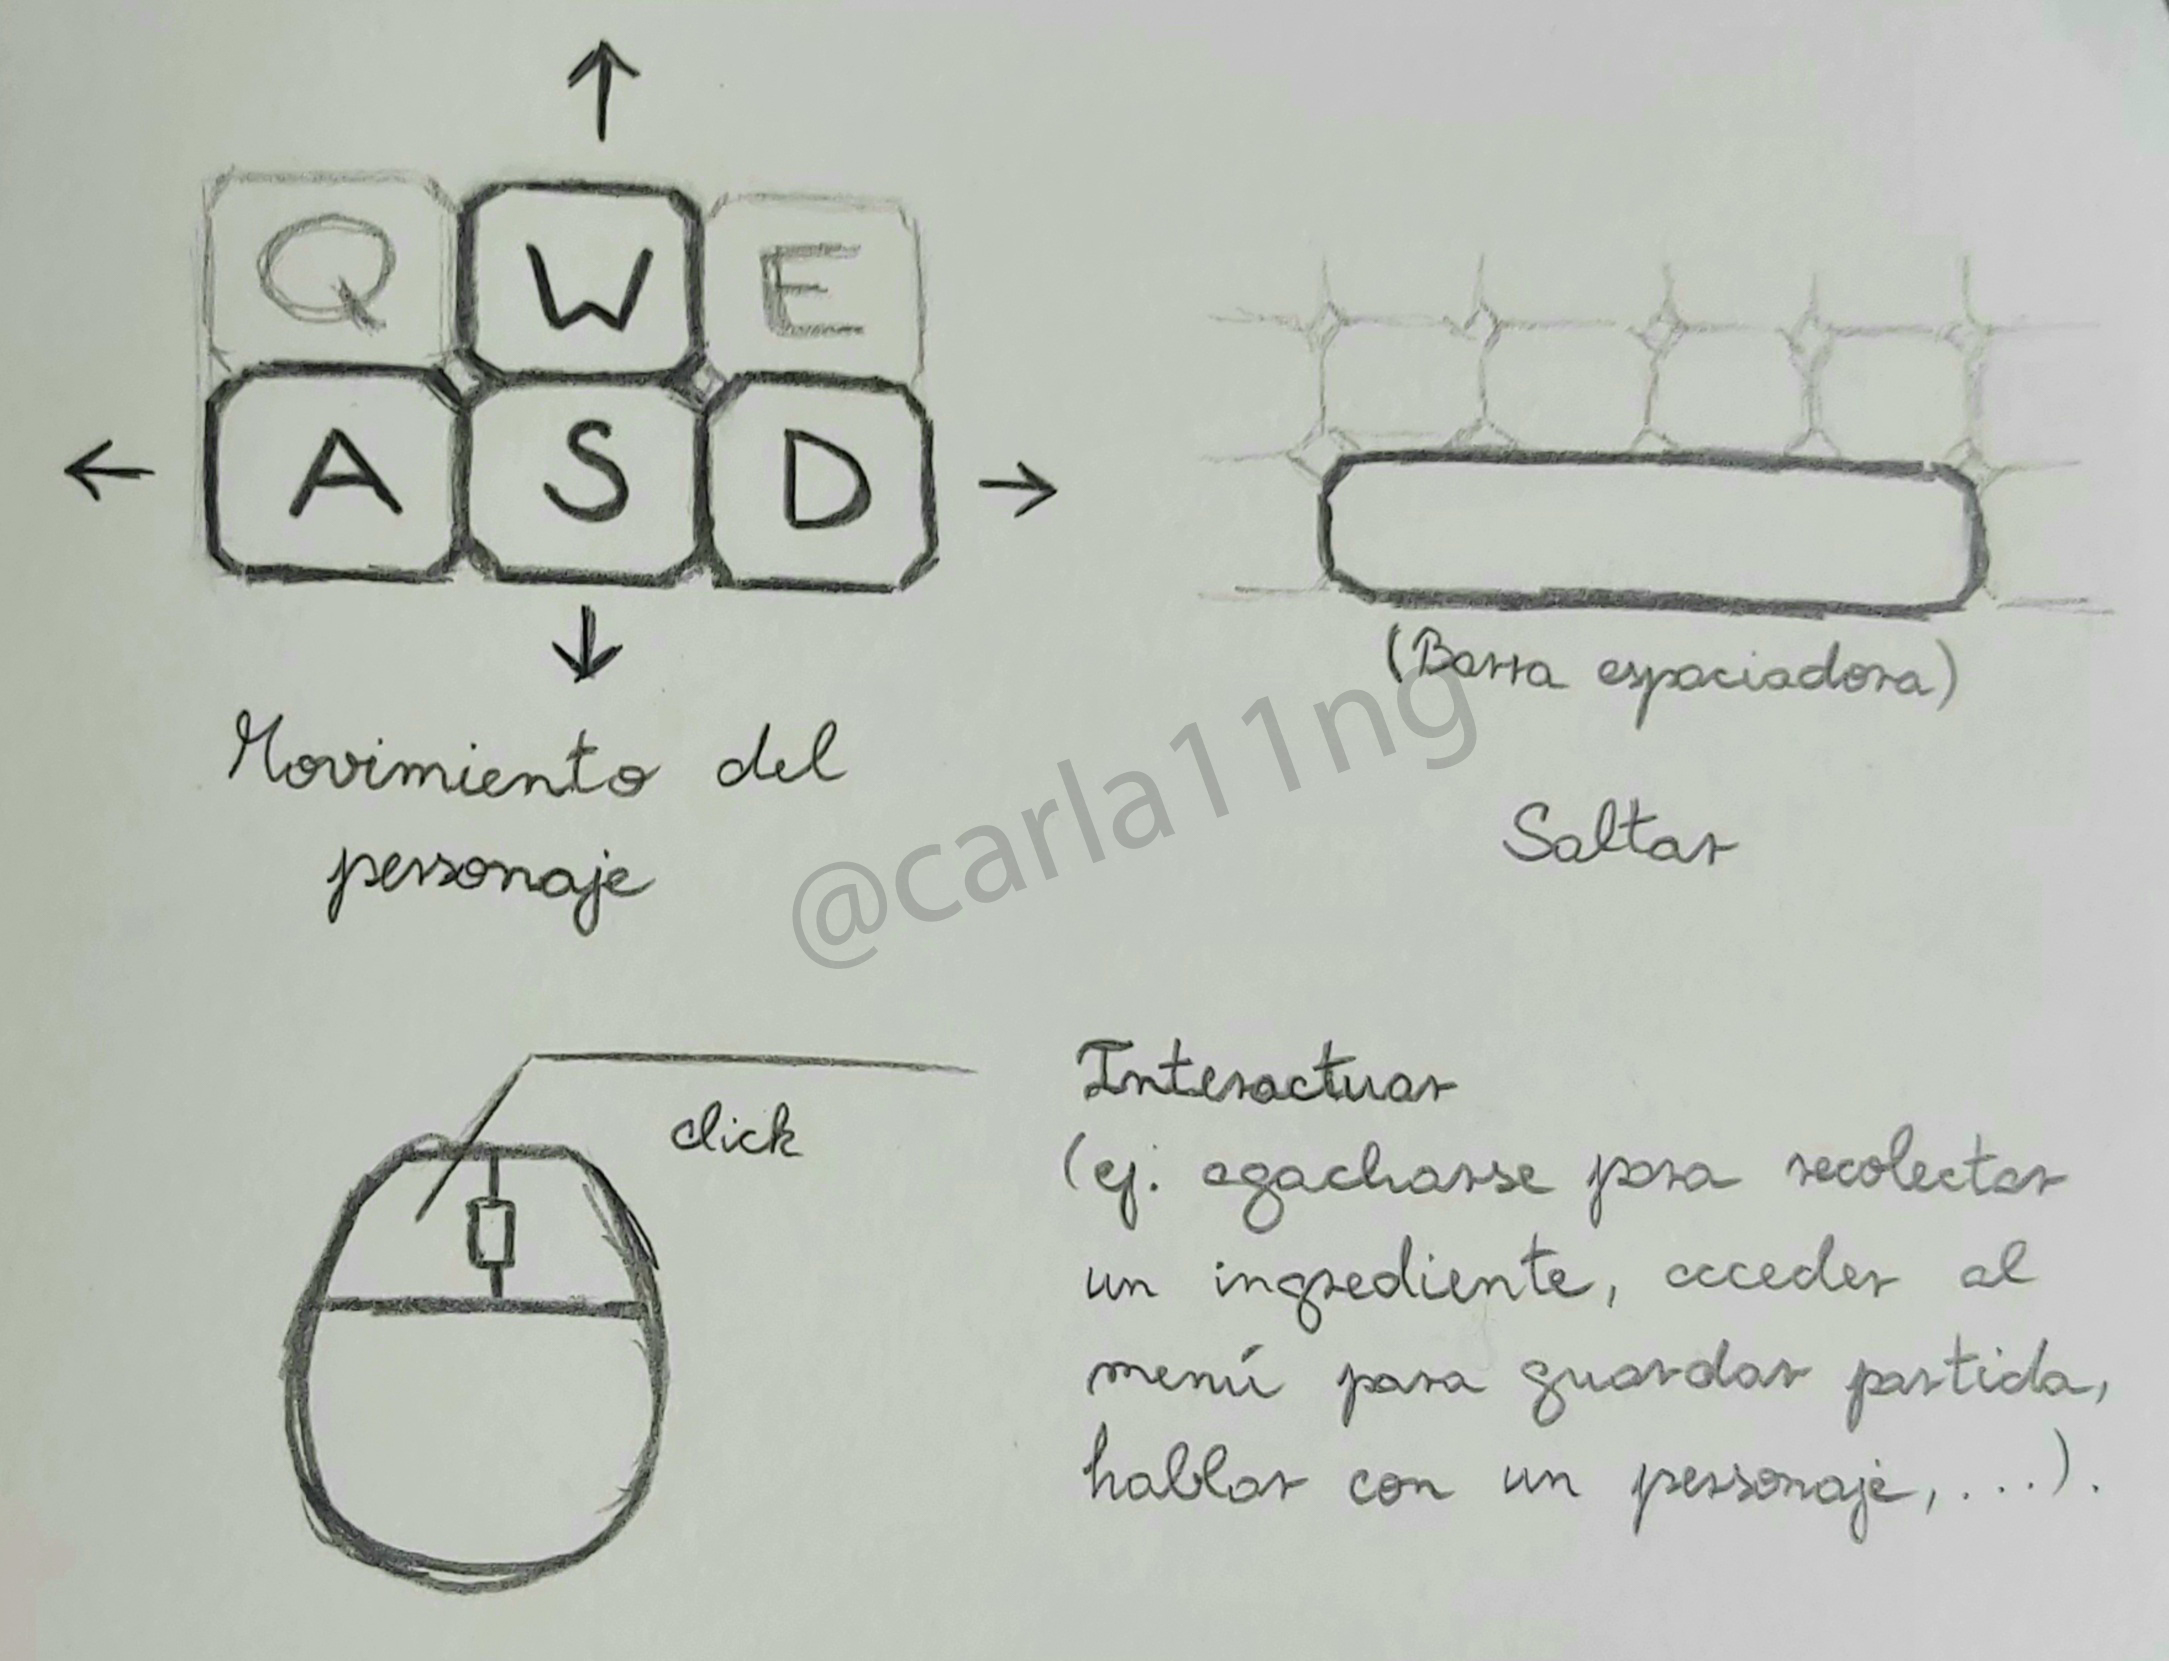 Q W E
A S D
Movimiento del
personaje
(Barra espaciadora)
Saltar
@carla11ng
click
Interactuar
(ej. agacharse para recolectar
un ingrediente, acceder al
menú para guardar partida,
hablar con un personaje,...).